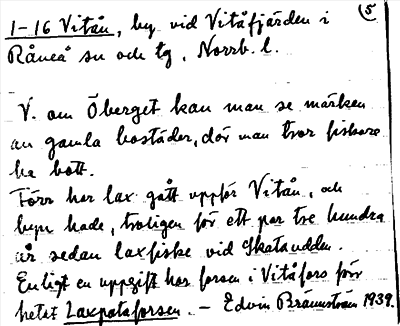 5
1-16 Vitån, by vid Vitåfjärden i
Råneå sn och tg, Norrb. l.
V. om Öberget kan man se märken
av gamla bostäder, där man tror fiskare
ha bott.
Förr har lax gått uppför Vitån, och
byn hade, troligen för ett par tre hundra
år sedan laxfiske vid Skataudden.
Enligt en uppgift har forsen i Vitåfors förr
hetat Laxpataforsen. – Edvin Brännström 1939.